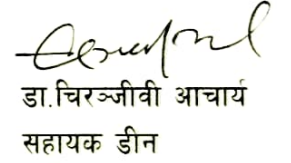 डा.चिरञ्जीवी आचार्य
सहायक डीन